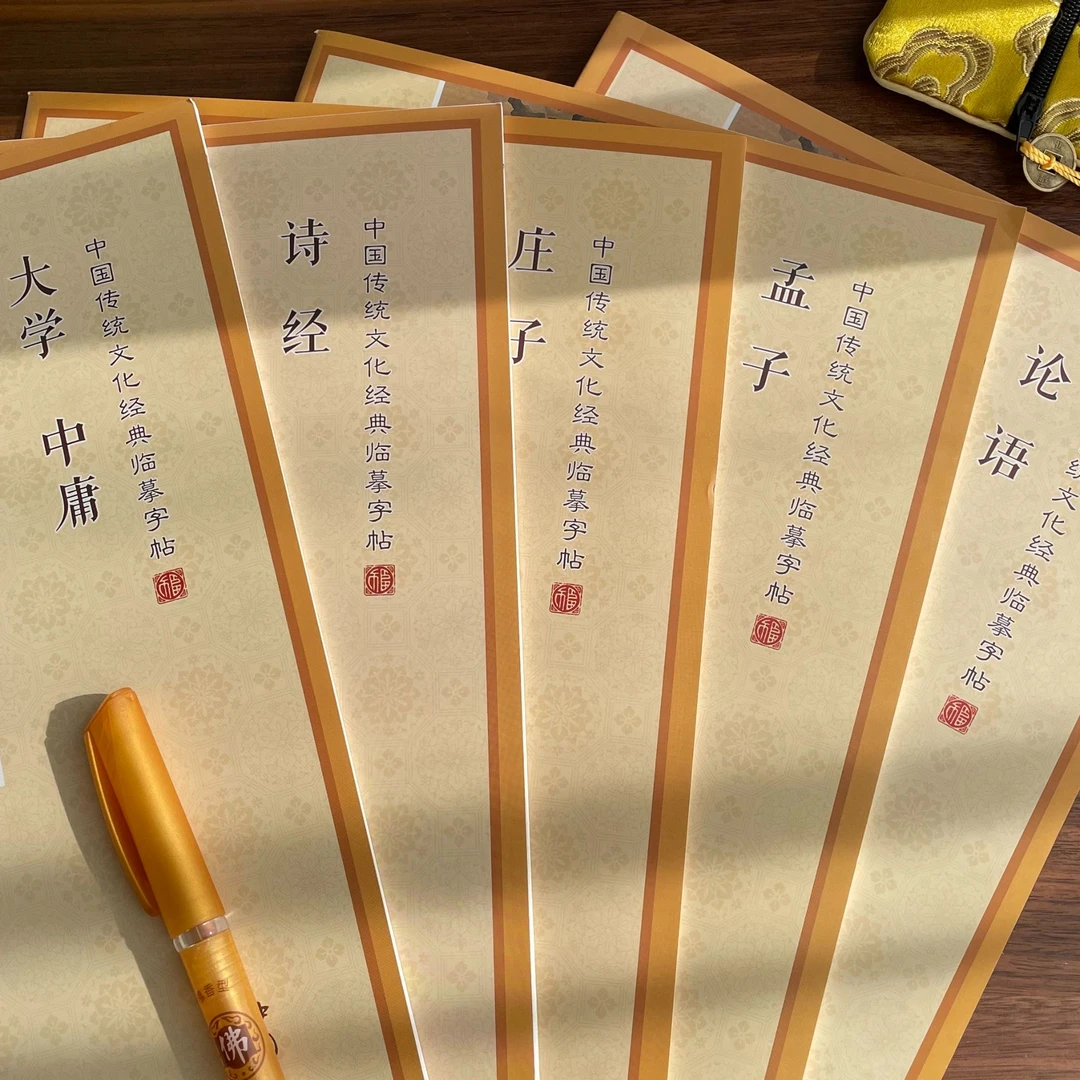 大学 中庸
中国传统文化经典临摹字帖
福
诗经
中国传统文化经典临摹字帖
福
庄子
中国传统文化经典临摹字帖
福
孟子
中国传统文化经典临摹字帖
福
论语
统文化经典临摹字帖
福
香型
佛